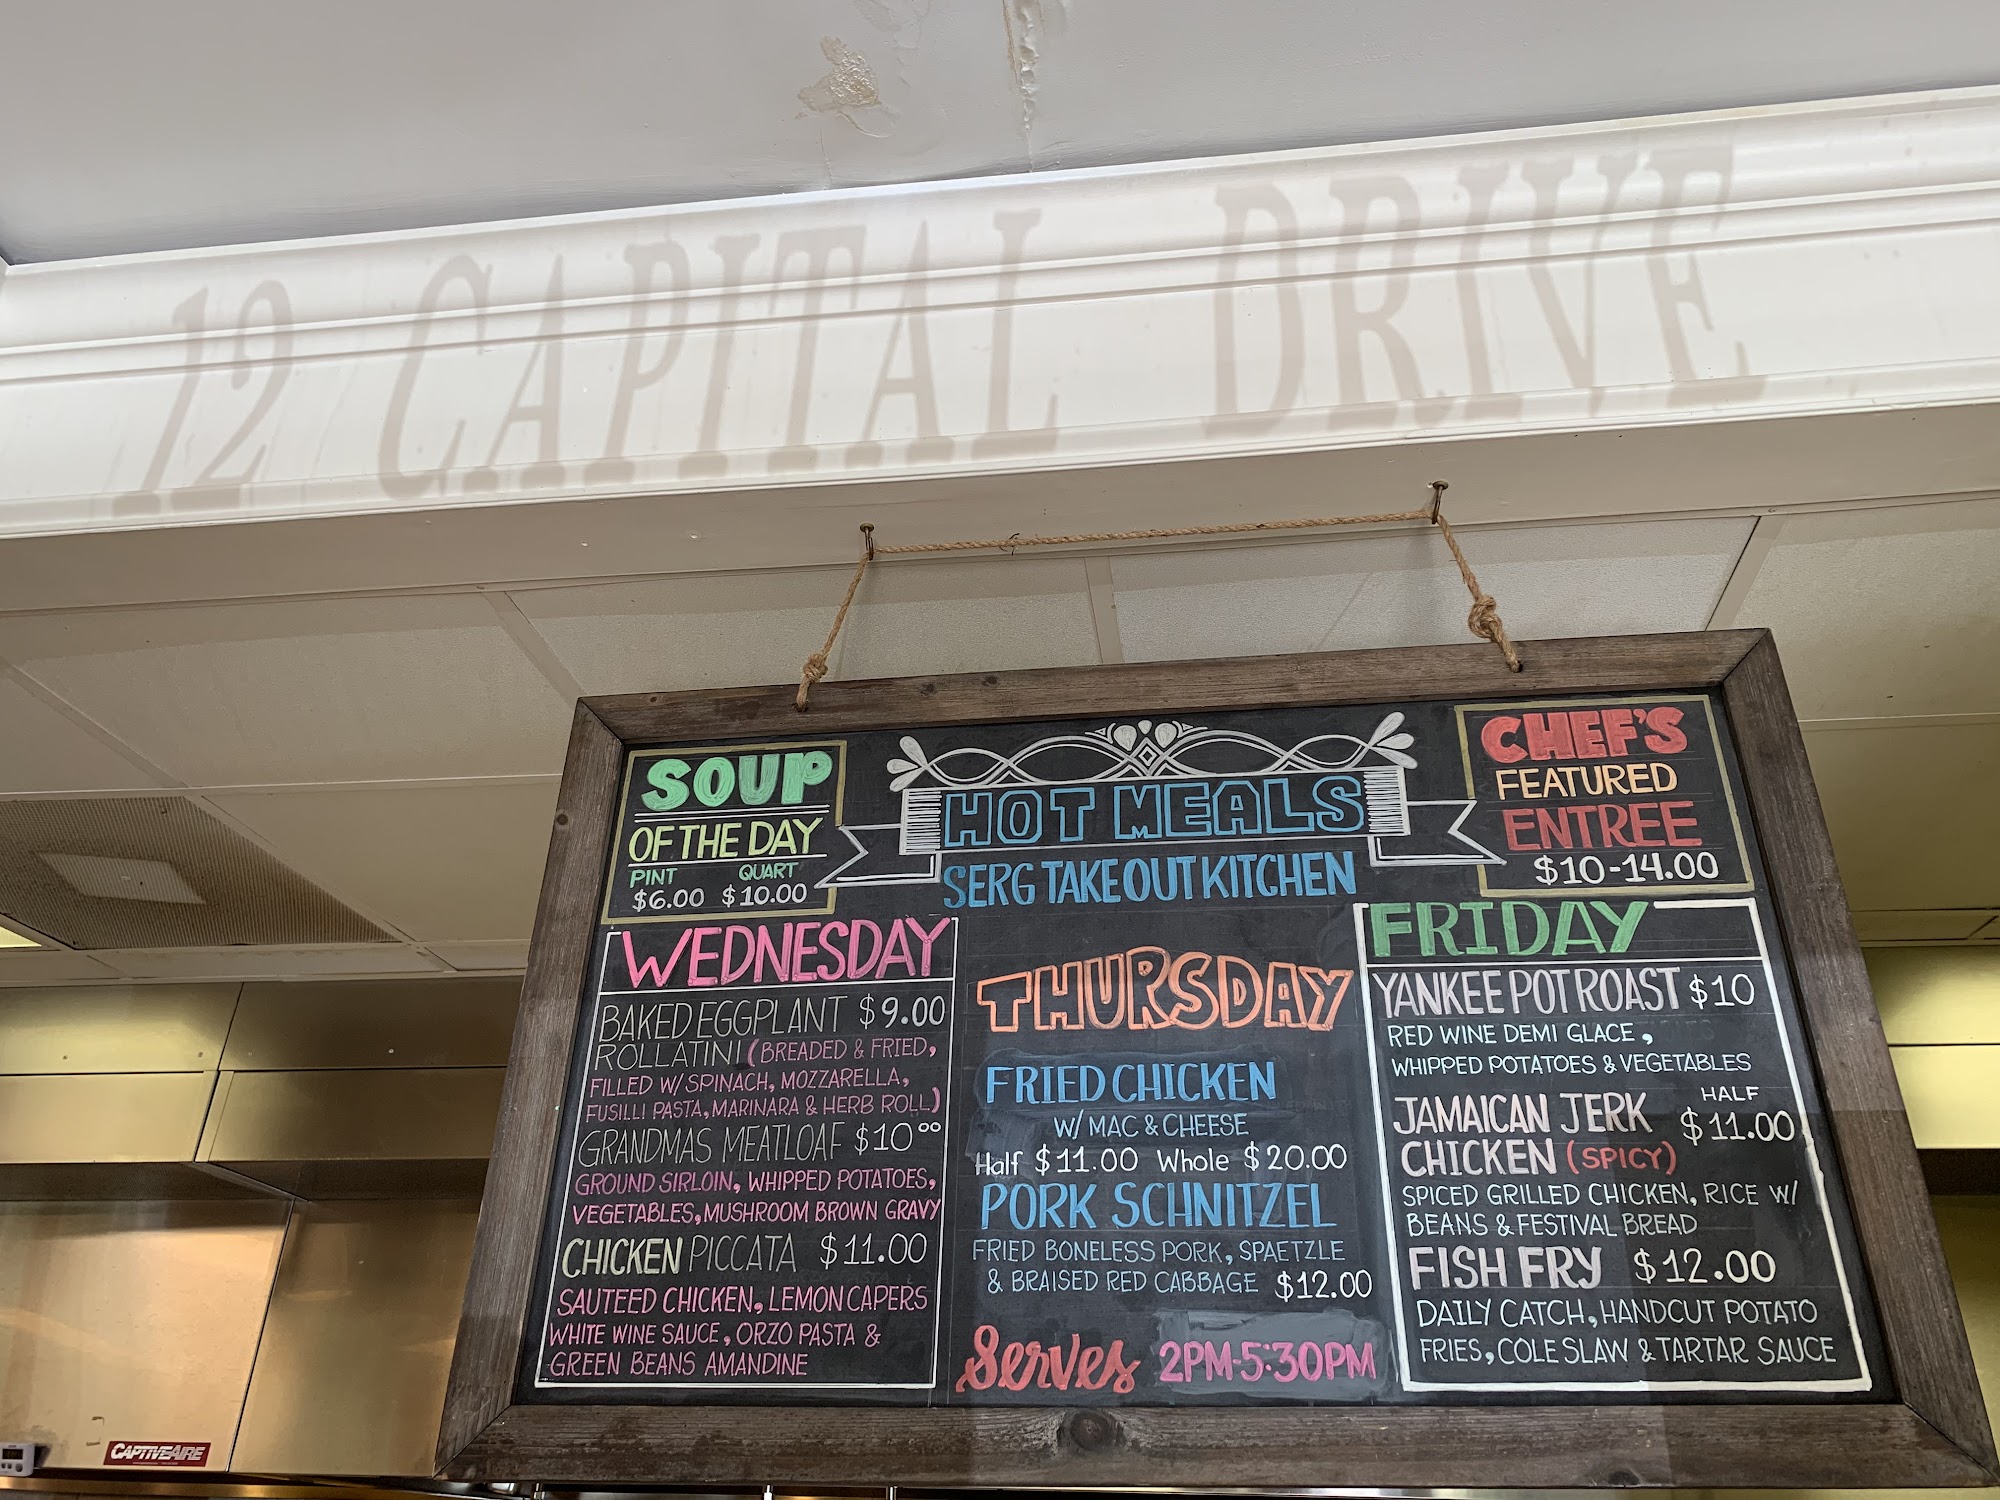 12 CAPITAL DRIVE
SOUP
OF THE DAY
PINT QUART
$6.00 $10.00
HOT MEALS
SERG TAKE OUT KITCHEN
CHEF'S
FEATURED
ENTREE
$10-14.00
WEDNESDAY
BAKED EGGPLANT $9.00
ROLLATINI (BREADED & FRIED,
FILLED W/ SPINACH, MOZZARELLA,
FUSILLI PASTA, MARINARA & HERB ROLL)
GRANDMAS MEATLOAF $10.00
GROUND SIRLOIN, WHIPPED POTATOES,
VEGETABLES, MUSHROOM BROWN GRAVY
CHICKEN PICCATA $11.00
SAUTEED CHICKEN, LEMON CAPERS
WHITE WINE SAUCE, ORZO PASTA &
GREEN BEANS AMANDINE
THURSDAY
FRIED CHICKEN
W/ MAC & CHEESE
Half $11.00 Whole $20.00
PORK SCHNITZEL
FRIED BONELESS PORK, SPAETZLE
& BRAISED RED CABBAGE $12.00
Serves 2PM-5:30PM
FRIDAY
YANKEE POT ROAST $10
RED WINE DEMI GLACE,
WHIPPED POTATOES & VEGETABLES
HALF
JAMAICAN JERK $11.00
CHICKEN (SPICY)
SPICED GRILLED CHICKEN, RICE W/
BEANS & FESTIVAL BREAD
FISH FRY $12.00
DAILY CATCH, HANDCUT POTATO
FRIES, COLE SLAW & TARTAR SAUCE
CAPTIVEAIRE